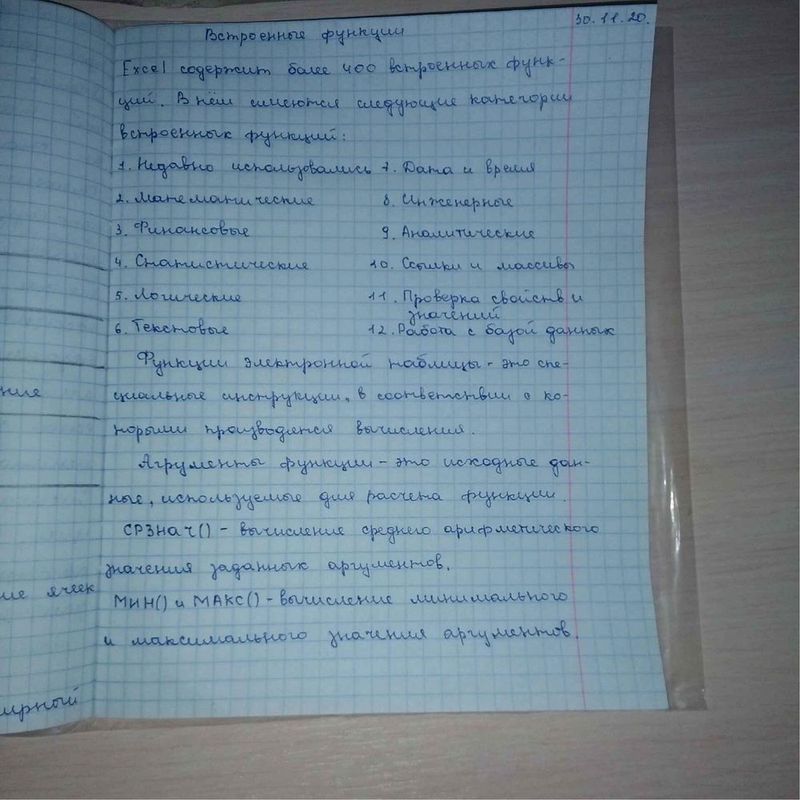 30.11.20.
Встроенные функции
Excel содержит более 400 встроенных функ-
ций. В нём имеются следующие категории
встроенных функций:
1. Недавно использовались 7. Дата и время
2. Математические 8. Инженерные
3. Финансовые 9. Аналитические
4. Статистические 10. Ссылки и массивы
5. Логические 11. Проверка свойств и
значений
6. Текстовые 12. Работа с базой данных
Функции электронной таблицы - это спе-
циальные инструкции, в соответствии с ко-
торыми производятся вычисления.
Агрументы функции - это исходные дан-
ные, используемые для расчета функции.
СРЗНАЧ() - вычисление среднего арифметического
значения заданных аргументов.
МИН() и МАКС() - вычисление минимального
и максимального значения аргументов.
ние
ие ячеек
ирный